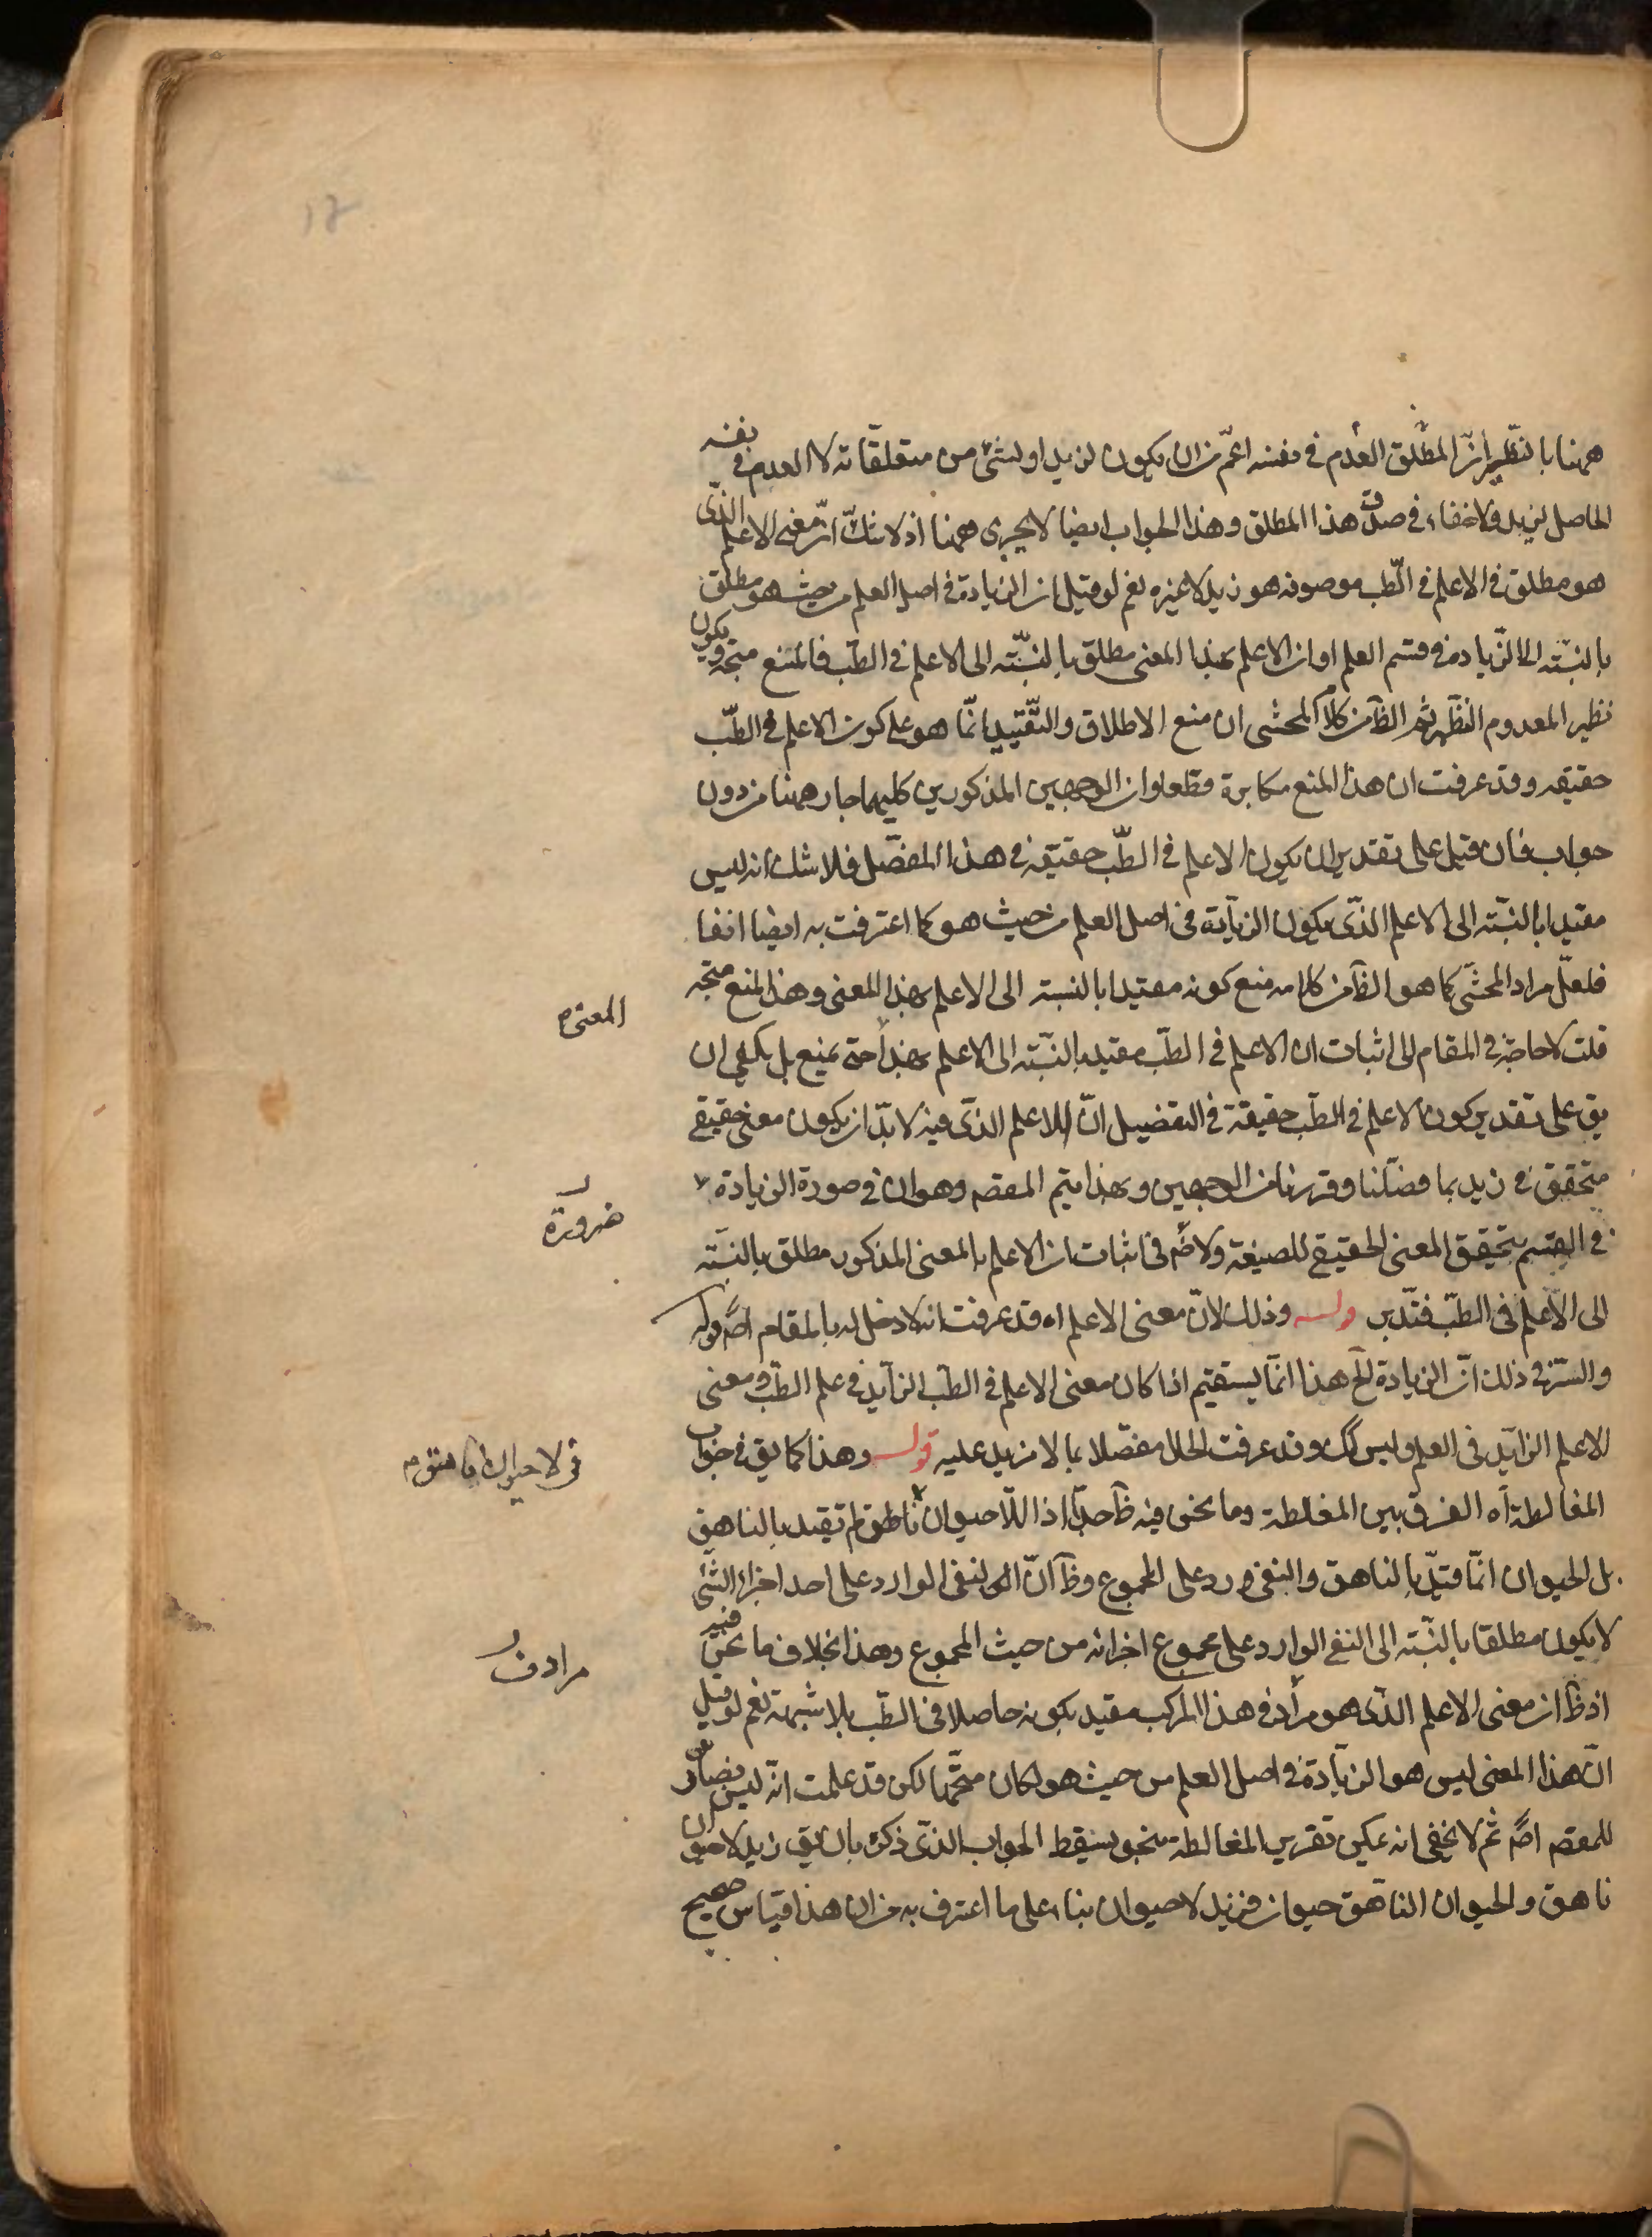 ههنا بالنظير انّ المطلق العدم في نفسه اعمّ من ان يكون لزيد او لشئ من متعلقاته لا العدم في نفسه
الحاصل لزيد ولا خفاء في صدق هذا المطلق وهذا الجواب ايضا لا يجرى ههنا اذ لا شكّ انّ معنى الاعلم الذى
هو مطلق في الاعلم في الطّب موصوفه هو زيد لا غيره نعم لو قيل ان الزيادة في اصل العلم من حيث هو مطلق
بالنسبّة الى الزّيادة في قسم العلم او ان الاعلم بهذا المعنى مطلق بالنسبّة الى الاعلم في الطبّ فالمنع متجه ويكون
نظير المعدوم النظير ثم الظّ من كلام المحشى ان منع الاطلاق والتّقييد انّما هو على كون الاعلم في الطبّ
حقيقه وقد عرفت ان هذا المنع مكابرة قطعا وان الوجهين المذكورين كليهما جار ههنا من دون
جواب فان قيل على تقدير ان يكون الاعلم في الطبّ حقيقة في هذا المفصّل فلا شك انه ليس
مقيدا بالنسبّة الى الاعلم الذّى يكون الزيادة في اصل العلم من حيث هو كما اعترفت به ايضا انفا
فلعلّ مراد المحشّى كما هو الظّ من كلامه منع كونه مقيدا بالنسبة الى الاعلم بهذا المعنى وهذا المنع متجه
قلت لا حاجة في المقام الى اثبات ان الاعلم في الطبّ مقيد بالنسبّة الى الاعلم بهذا حتى يمنع بل يكفي ان
المعنى م
يق على تقدير كون الاعلم في الطبّ حقيقة في التفضيل انّ الاعلم الذّى فيه لا بدّ ان يكون معنى حقيقي
متحقق في زيد بما فصّلنا وقررنا من الوجهين وبهذا يتم المقصم وهو ان في صورة الزيادة
ضرورة
في القسم يتحقق المعنى الحقيقي للصيغة ولا ثم في اثبات ان الاعلم بالمعنى المذكور مطلق بالنسبّة
الى الاعلم في الطبّ فتدّبر قوله وذلك لانّ معنى الاعلم اه قد عرفت انه لا دخل له بالمقام اصّ قوله
والسّر في ذلك انّ الزيادة الخ هذا انّما يستقيم اذا كان معنى الاعلم في الطبّ الزايد في علم الطبّ ومعنى
الاعلم الزايد في العلم وليس كك وقد عرفت الحال مفصّلا بما لا مزيد عليه قوله وهذا كما يق في جواب
المغالطة آه الفرق بين المغلطة وما نحن فيه ظّ جدّا اذ اللّا حيوان ناهق لم تقيد بالناهق
بل الحيوان انّما قيّد بالناهق والنفى ورد على المجموع وظّ انّ النفى الوارد على احد اجزاء الشئ
لا يكون مطلقا بالنسبّة الى النفى الوارد على مجموع اجزائه من حيث المجموع وهذا بخلاف ما نحن فيه
مرادف
اذ ظّ ان معنى الاعلم الذى هو مراد في هذا المركب مقيد بكونه حاصلا في الطبّ بلا شبهة نعم لو قيل
انّ هذا المعنى ليس هو الزيادة في اصل العلم من حيث هو لكان متجّها لكن قد علمت انّه ليس بضار
للمقصم اصّ ثم لا يخفى انه يمكن تقرير المغالطة بنحو يسقط الجواب الذى ذكره بان يق زيد لا حيوان
ناهق والحيوان الناهق حيوان فزيد لا حيوان بناء على ما اعترف به من ان هذا قياس صحيح